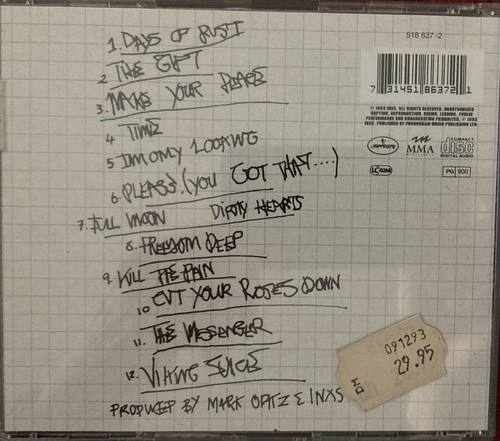 1. DAYS OF RUST
2 THE GIFT
3. MAKE YOUR PEACE
4 TIME
5 IM ONLY LOOKING
6. PLEASE (YOU GOT THAT....)
7. FULL MOON DIRTY HEARTS
8. FREEDOM DEEP
9. KILL THE PAIN
10 CUT YOUR ROSES DOWN
11. THE MESSENGER
12. VIKING JUICE
PRODUCED BY MARK OPITZ & INXS
518 637-2
7 31451 86372 1
ALL RIGHTS RESERVED. UNAUTHORISED
COPYING, REPRODUCTION, HIRING, LENDING, PUBLIC
PERFORMANCE AND BROADCASTING PROHIBITED.
mercury
MMA
COMPACT
disc
DIGITAL AUDIO
PG 900
091293
29.95